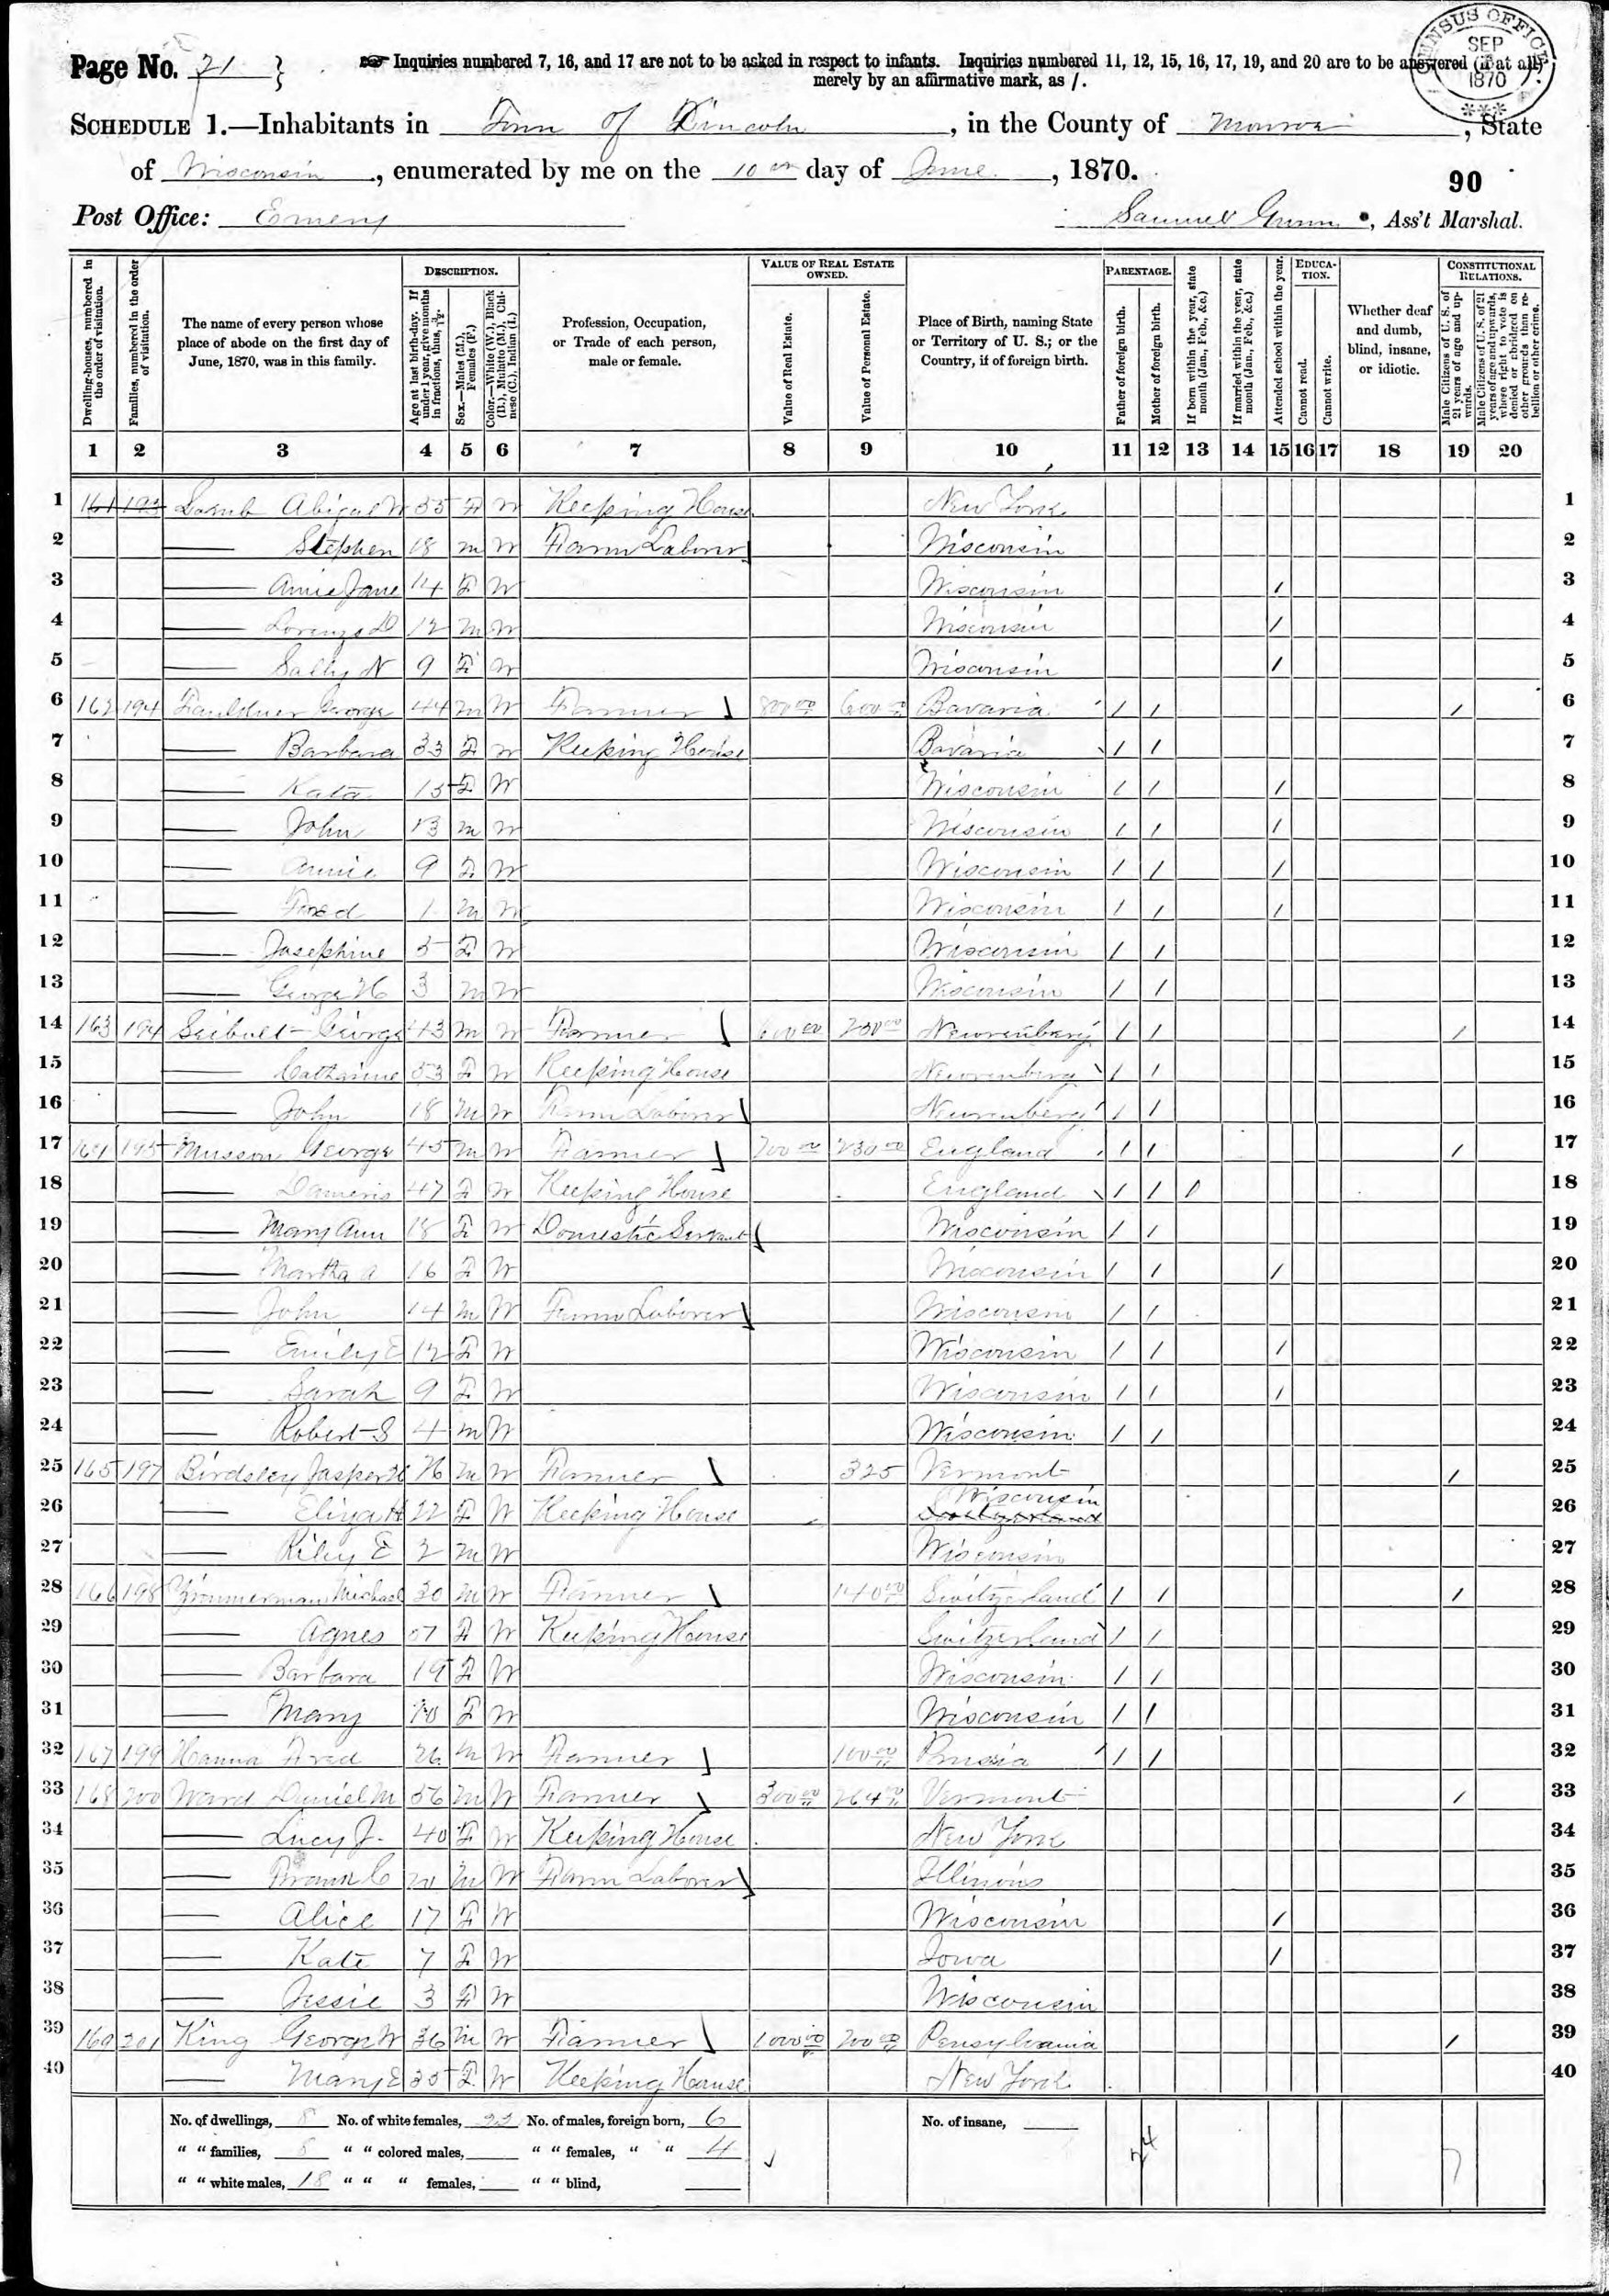 Page No. 21 }
☞ Inquiries numbered 7, 16, and 17 are not to be asked in respect to infants. Inquiries numbered 11, 12, 15, 16, 17, 19, and 20 are to be answered (if at all)
merely by an affirmative mark, as /.
CENSUS OFFICE
SEP
1870
***
SCHEDULE 1.—Inhabitants in Town of Lincoln, in the County of Monroe, State
of Wisconsin, enumerated by me on the 10th day of June, 1870.
90
Post Office: Emery
Samuel Gunn, Ass't Marshal.
Dwelling-houses, numbered in the order of visitation.
Families, numbered in the order of visitation.
The name of every person whose place of abode on the first day of June, 1870, was in this family.
DESCRIPTION.
Age at last birth-day. If under 1 year, give months in fractions, thus, 3/12.
Sex.—Males (M.), Females (F.)
Color.—White (W.), Black (B.), Mulatto (M.), Chinese (C.), Indian (I.)
Profession, Occupation, or Trade of each person, male or female.
VALUE OF REAL ESTATE OWNED.
Value of Real Estate.
Value of Personal Estate.
Place of Birth, naming State or Territory of U. S.; or the Country, if of foreign birth.
PARENTAGE.
Father of foreign birth.
Mother of foreign birth.
If born within the year, state month (Jan., Feb., &c.)
If married within the year, state month (Jan., Feb., &c.)
Attended school within the year.
EDUCATION.
Cannot read.
Cannot write.
Whether deaf and dumb, blind, insane, or idiotic.
CONSTITUTIONAL RELATIONS.
Male Citizens of U. S. of 21 years of age and upwards.
Male Citizens of U. S. of 21 years of age and upwards, whose right to vote is denied or abridged on other grounds than rebellion or other crime.
1 2 3 4 5 6 7 8 9 10 11 12 13 14 15 16 17 18 19 20
1 161 193 Abigal W 35 F W Keeping House New York 1
2 — Stephen 18 M W Farm Laborer Wisconsin 2
3 — Annie Jane 14 F W Wisconsin / 3
4 — Lorenzo D 12 M W Wisconsin / 4
5 — Sally N 9 F W Wisconsin / 5
6 162 194 Faulkner George 44 M W Farmer 800 00 600 00 Bavaria / / / 6
7 — Barbara 33 F W Keeping House Bavaria / / 7
8 — Kate 15 F W Wisconsin / / / 8
9 — John 13 M W Wisconsin / / / 9
10 — Annie 9 F W Wisconsin / / / 10
11 — Fred M W Wisconsin / / / 11
12 — Josephine 5 F W Wisconsin / / 12
13 — George H 3 M W Wisconsin / / 13
14 163 194 George 43 M W Farmer 600 00 / / / 14
15 — Catharine 53 F W Keeping House / / 15
16 — John 18 M W Farm Laborer / / 16
17 164 195 Musson George 45 M W Farmer 700 00 250 00 England / / / 17
18 — 47 F W Keeping House England / / 18
19 — Mary Ann 18 F W Domestic Servant Wisconsin / / 19
20 — Martha A 16 F W Wisconsin / / / 20
21 — John 14 M W Farm Laborer Wisconsin / / 21
22 — Emily E 12 F W Wisconsin / / / 22
23 — Sarah 9 F W Wisconsin / / / 23
24 — Robert S 4 M W Wisconsin / / 24
25 165 197 Birdsley Jasper H 26 M W Farmer 325 Vermont / 25
26 — Eliza H 22 F W Keeping House Wisconsin 26
27 — Riley E 2 M W Wisconsin 27
28 166 198 Zimmerman Michael 30 M W Farmer 140 00 Switzerland / / / 28
29 — Agnes F W Keeping House Switzerland / / 29
30 — Barbara F W Wisconsin / / 30
31 — Mary F W Wisconsin / / 31
32 167 199 Hanna Fred 26 M W Farmer 100 00 Prussia / / 32
33 168 200 Ward Daniel M 56 M W Farmer 300 00 264 00 Vermont / 33
34 — Lucy J. 40 F W Keeping House New York 34
35 — 20 M W Farm Laborer Illinois 35
36 — Alice 17 F W Wisconsin / 36
37 — Kate 7 F W Iowa / 37
38 — Jessie 3 F W Wisconsin 38
39 169 201 King George W 36 M W Farmer 1000 00 200 00 Pensylvania / 39
40 — Mary E 35 F W Keeping House New York 40
No. of dwellings, 8 No. of white females, 22 No. of males, foreign born, 6 No. of insane,
" " families, 8 " " colored males, " " females, " " 4
" " white males, 18 " " " females, " " blind,
24 7